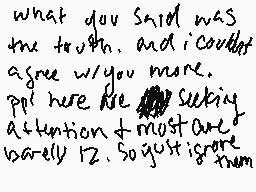 what you said was
the truth. and i couldnt
agree w/you more.
ppl here are seeking
attention + most are
barely 12. So just ignore
them